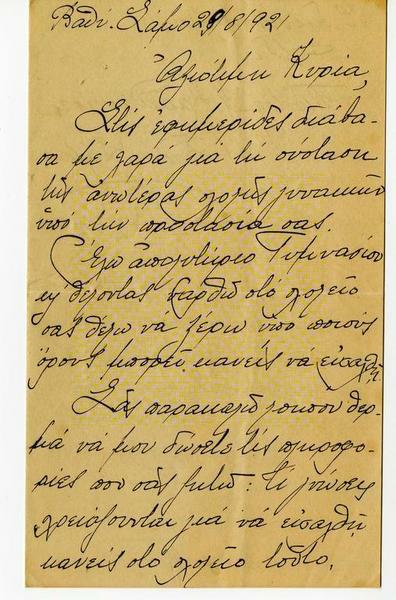 Βαθύ. Σάμο 29/8/921
Ἀξιότιμη Κυρία,
Στὶς ἐφημερίδες διάβα-
σα μὲ χαρά γιά τὴ σύσταση
τῆς ἀνωτέρας σχολῆς γυναικῶν
ὑπό τὴν προστασία σας.
Ἔχω ἀπολυτήριο Γυμνασίου
κι' θέλοντας νάρθῶ στό σχολεῖο
σας θέλω νὰ ξέρω ὑπό ποιούς
ὅρους μπορεῖ κανείς νὰ εἰσαχθῆ.
Σᾶς παρακαλῶ λοιπον θερ-
μά νά μου δώσετε τὶς πληροφο-
ρίες που σᾶς ζητῶ: τί γνώσεις
χρειάζουνται γιά νὰ εἰσαχθῆ
κανείς στο σχολεῖο τοῦτο.